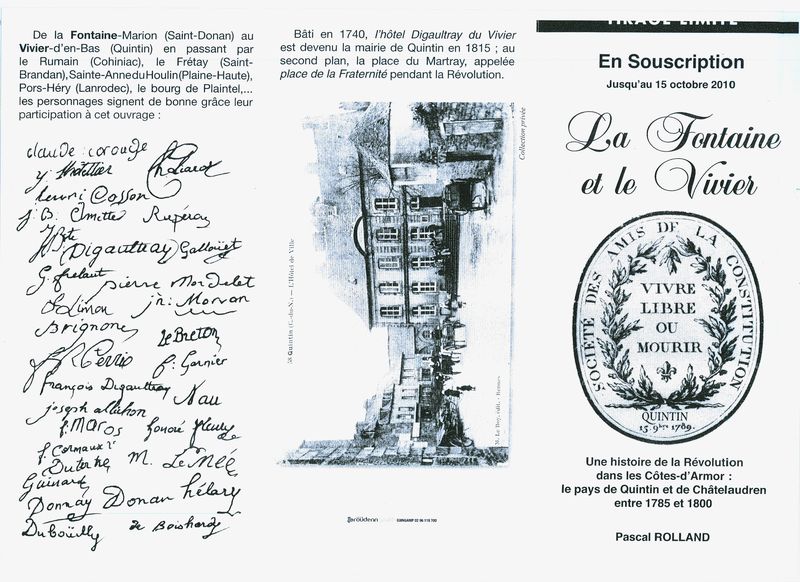 De la Fontaine-Marion (Saint-Donan) au
Vivier-d'en-Bas (Quintin) en passant par
le Rumain (Cohiniac), le Frétay (Saint-
Brandan), Sainte-Anne du Houlin (Plaine-Haute),
Pors-Héry (Lanrodec), le bourg de Plaintel,...
les personnages signent de bonne grâce leur
participation à cet ouvrage :
claude corouge
henri Cosson
Rupérou
Digaultray
G. frelaut
pierre Mordelet
Solimon
jn: Morvan
Brignone
le Breton
Perrio
f: Garnier
françois Digaultray
Nau
joseph allichon
f. Maros
honoré fleury
Duterne
M. Le Mée
Guinard
Donnay
Donan hélary
Duboüilly
de Boishardy
Bâti en 1740, l'hôtel Digaultray du Vivier
est devenu la mairie de Quintin en 1815 ; au
second plan, la place du Martray, appelée
place de la Fraternité pendant la Révolution.
Collection privée
58 Quintin (C.-du-N.) — L'Hôtel de Ville
GUINGAMP 02 96 119 700
TIRAGE LIMITÉ
En Souscription
Jusqu'au 15 octobre 2010
La Fontaine
et le Vivier
SOCIÉTÉ DES AMIS DE LA CONSTITUTION
VIVRE
LIBRE
OU
MOURIR
QUINTIN
15. 9bre 1789.
Une histoire de la Révolution
dans les Côtes-d'Armor :
le pays de Quintin et de Châtelaudren
entre 1785 et 1800
Pascal ROLLAND